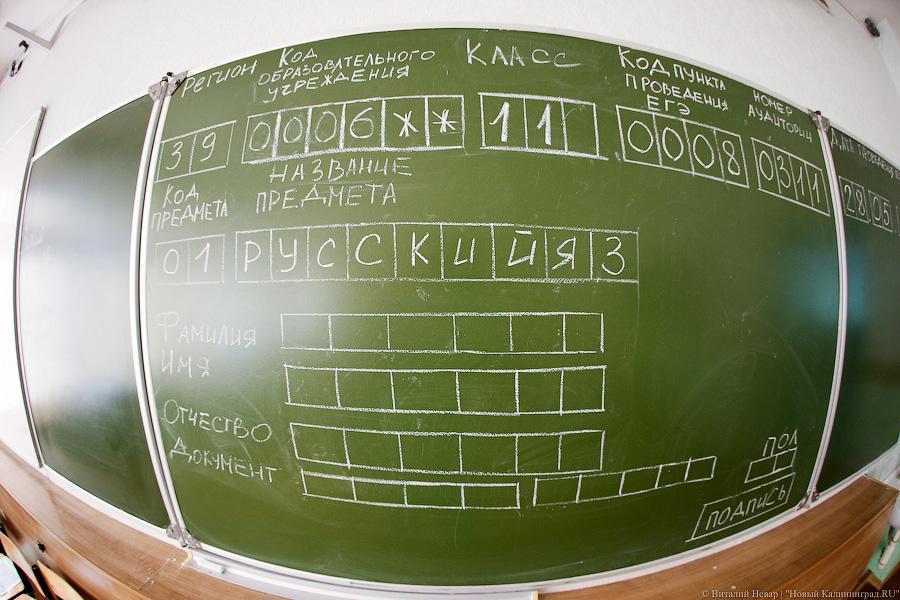 Регион
Код
образовтльного
учреждения
Класс
Код пункта
проведения
ЕГЭ
номер
аудитории
39
0006**
11
0008
0311
28 05
Код
предмета
Название
предмета
01
РУССКИЙЯЗ
Фамилия
Имя
Отчество
Документ
пол
подпись
© Виталий Невар | "Новый Калининград.RU"